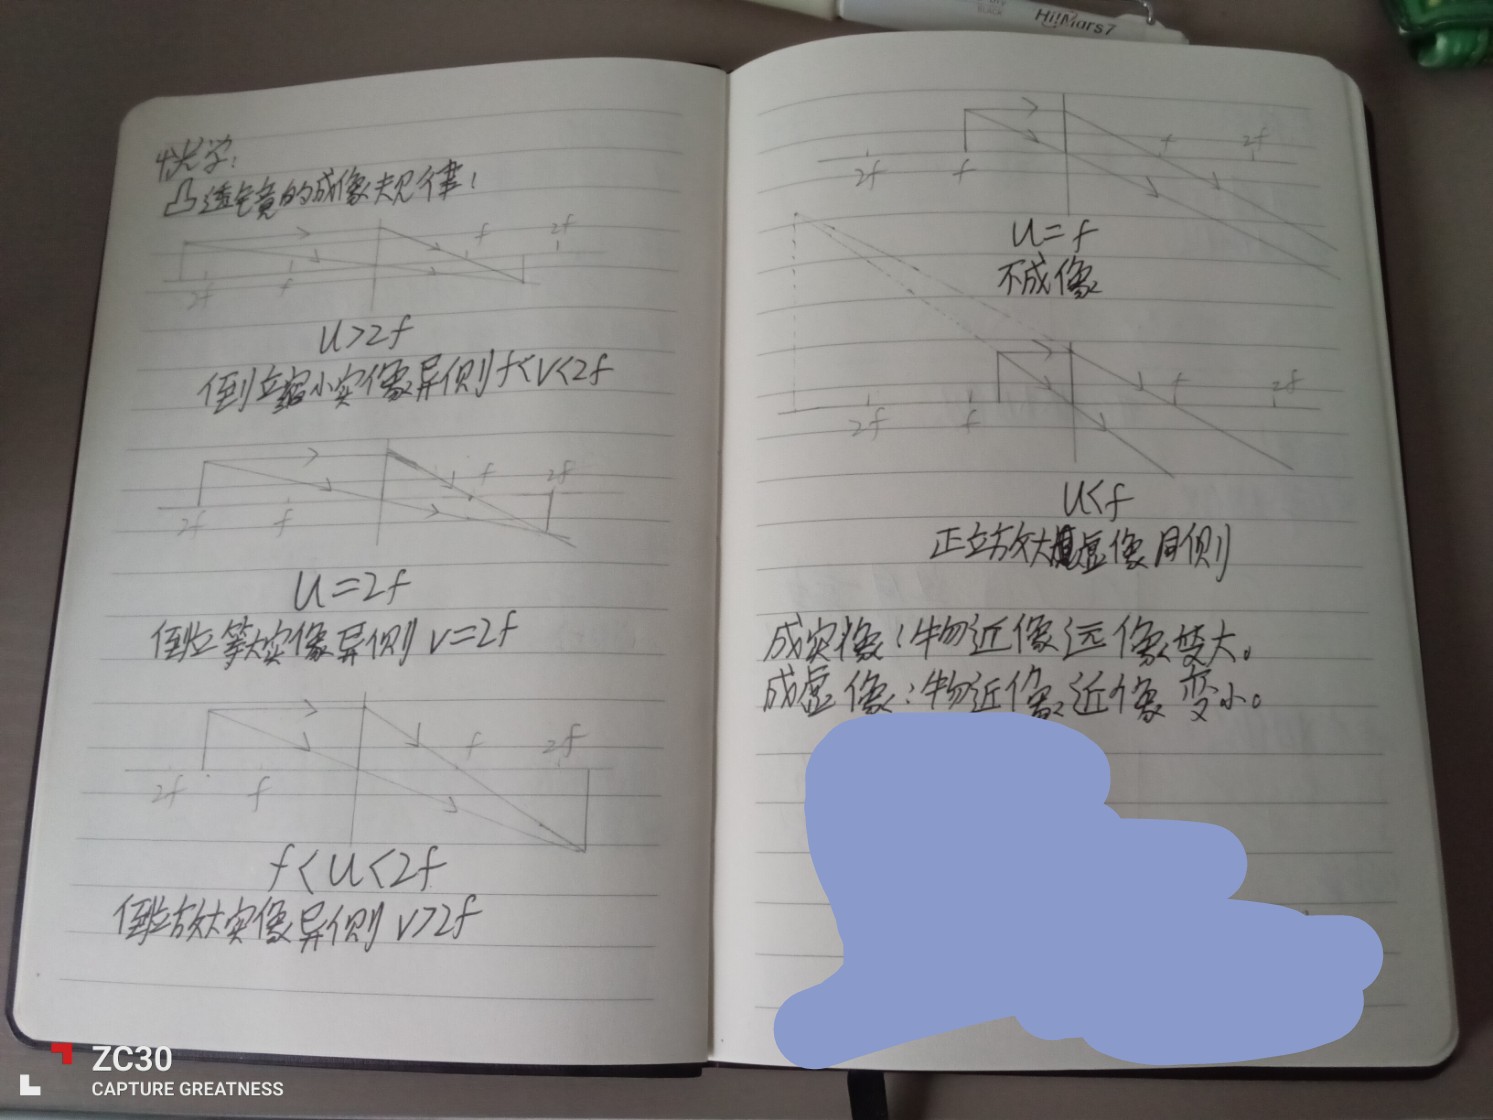 光学:
凸透镜的成像规律:
f
2f
2f
f
u>2f
倒立缩小实像异侧 f<v<2f
f
2f
2f
f
u=2f
倒立等大实像异侧 v=2f
f
2f
2f
f
f<u<2f
倒立放大实像异侧 v>2f
Hi!Mars7
f
2f
2f
f
u=f
不成像
f
2f
2f
f
u<f
正立放大虚像同侧
成实像:物近像远像变大。
成虚像:物近像近像变小。
ZC30
CAPTURE GREATNESS